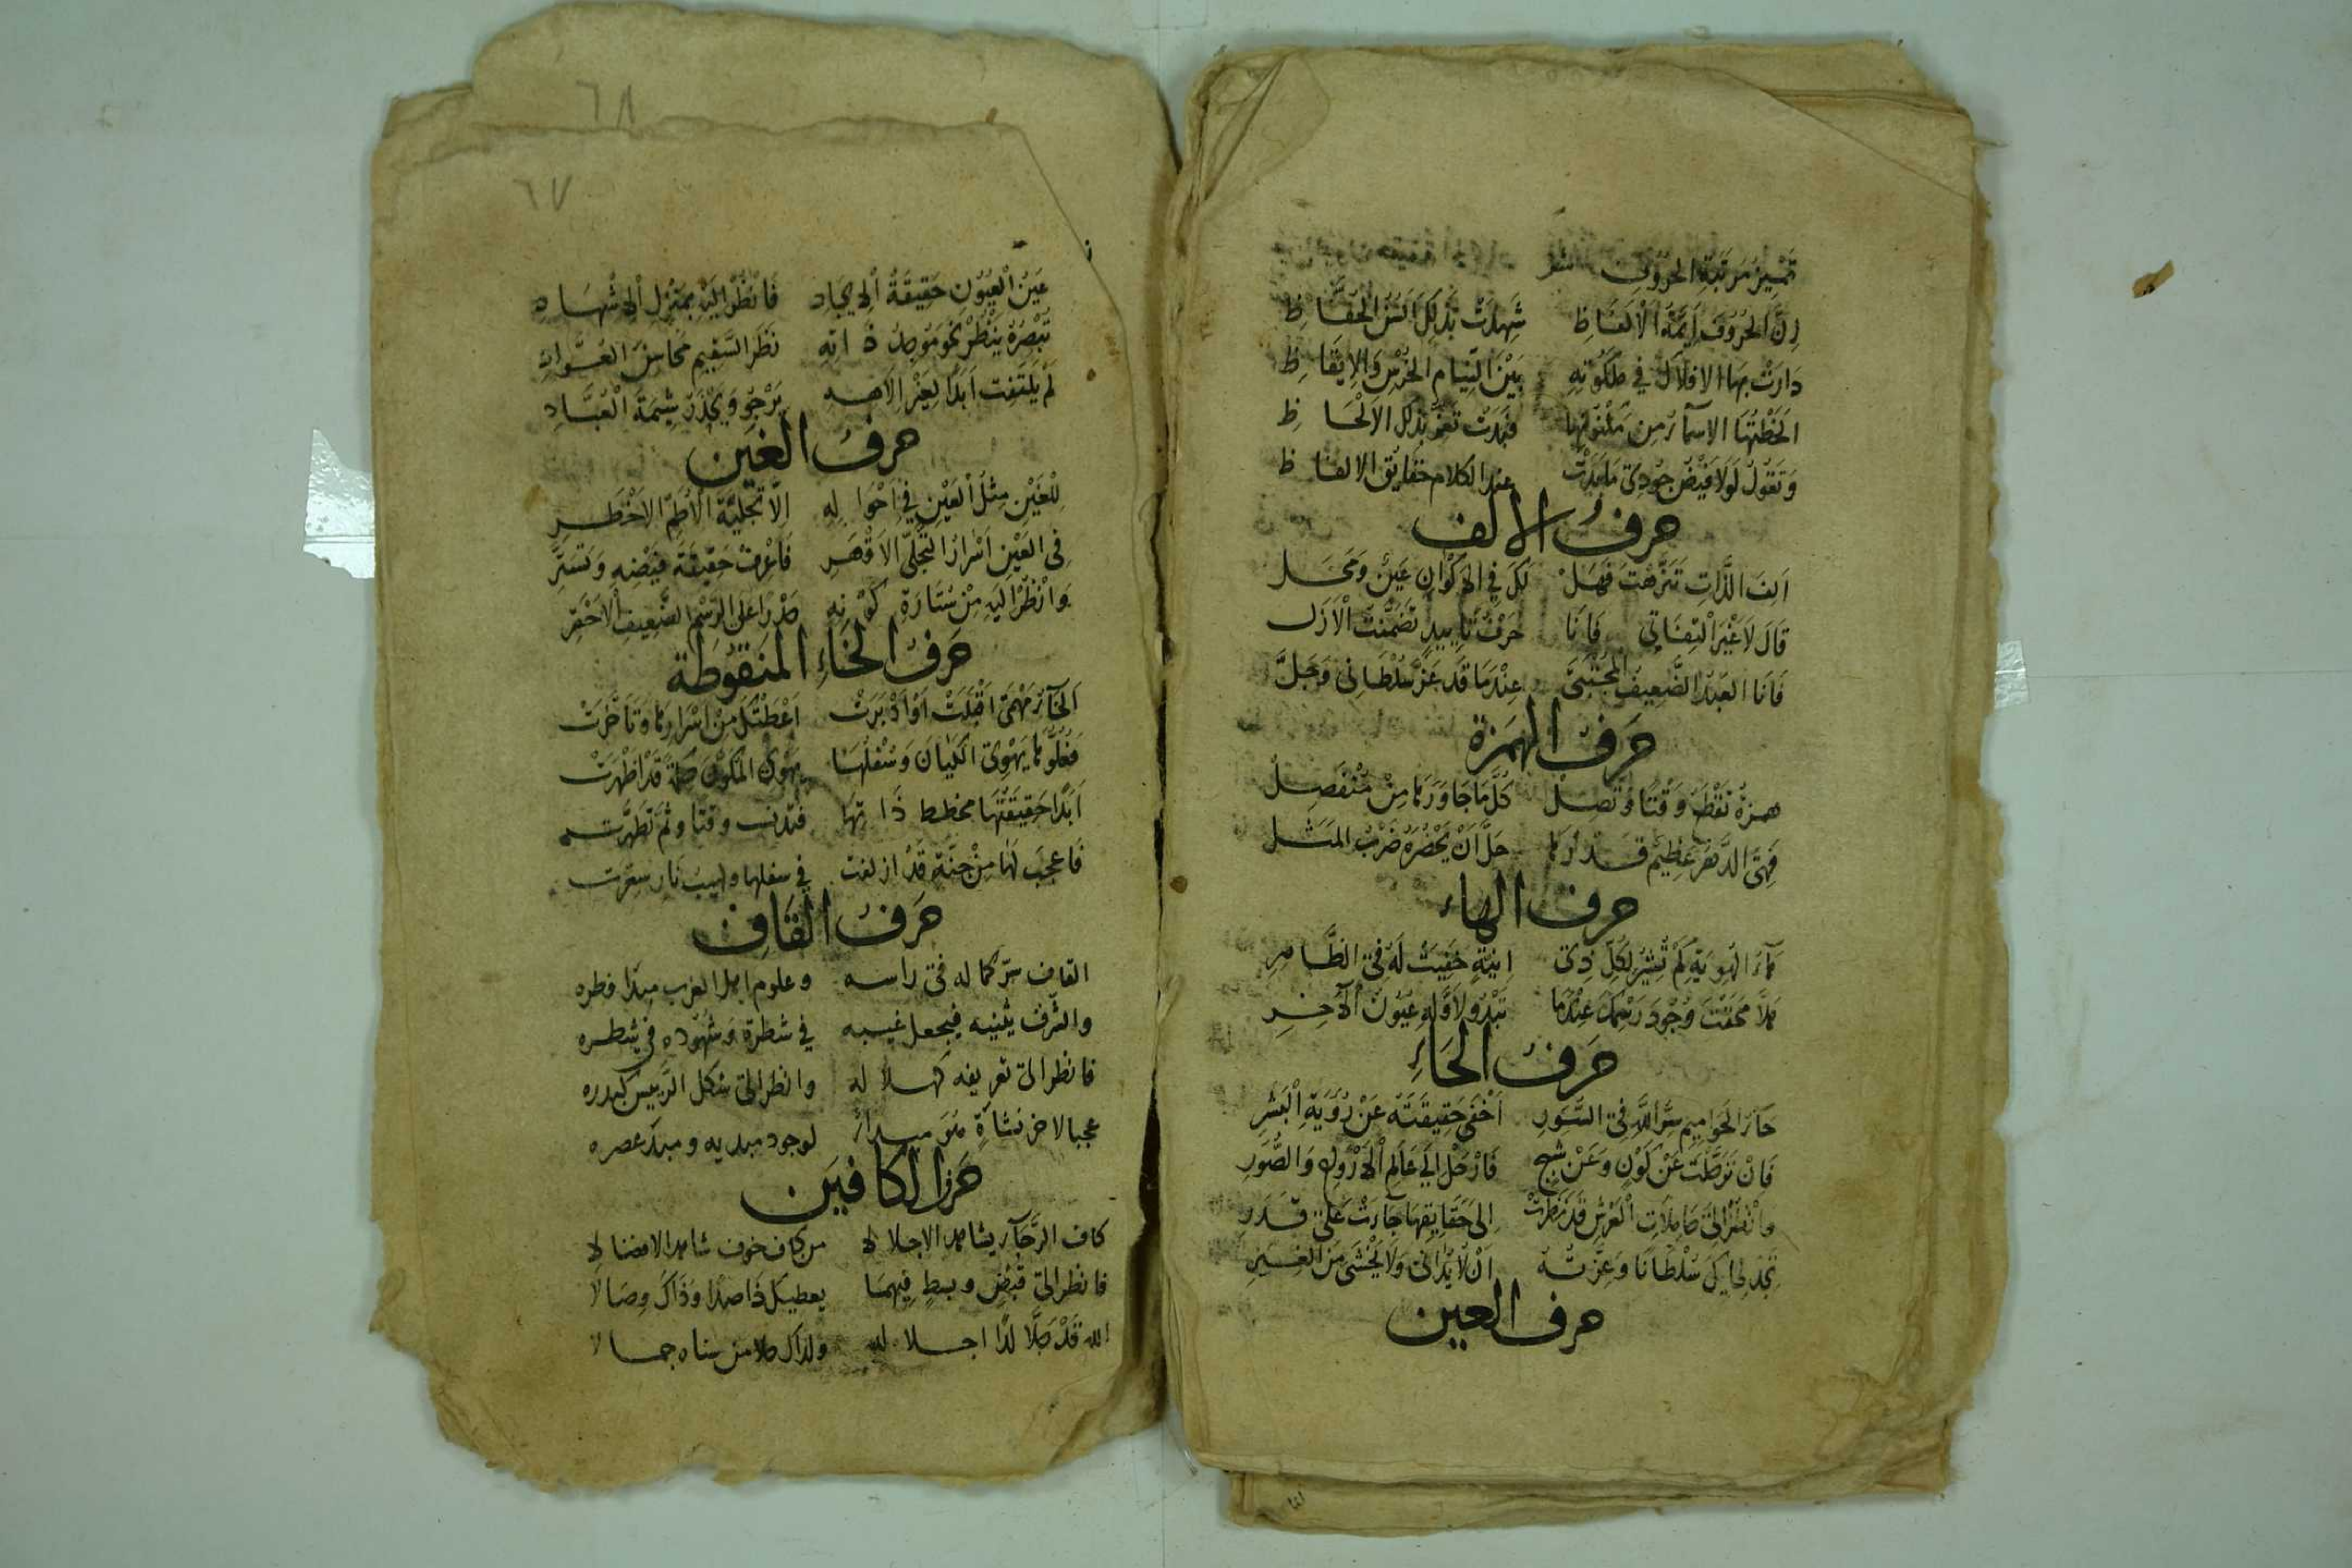 تمييز مرتبة الحروف شعر
اِنَّ الحُرُوفَ اَئِمَّةُ الْاَلفَاظِ شَهِدَتْ بِذٰلِكَ اَلسُنُ الحُفَّاظِ
دَارَتْ بِهَا الافلَاكُ فِي مَلَكُوتِهِ بَيْنَ النِّيَامِ الخُرْسِ وَالايقَاظِ
الحَظْنَهَا الاسمآءُ مِن مَكْنُونِهَا فَبَدَتْ تَعزُّ بذلك الاَلْحَاظِ
وَتَقُولُ لَولَا فَيْضُ جُودِى مَا بَدَتْ عند الكلام حَقَايُق الالفاظ
حرف الالف
اَلِفَ الذَّاتِ تَنَزَّهْتَ فَهَلْ لَكَ فِي الاكْوَانِ عَيْنٌ وَمَحَل
قَالَ لَا غَيْرَ الْتِفَاتِي فَاَنَا حَرْفُ تَابِيدٍ تَضَمَّنْتُ الْاَزَل
فَاَنَا العَبْدُ الضَّعِيفُ المُجْتَبَىٰ عِنْدَمَا قَد عَزَّ سُلْطَانِى وَجَلَّ
حَرفُ الهَمزة
همزة تقْطَعُ وَقْتًا وَتَصِل كُلَّ مَا جَاوَرَهَا مِنْ مُنْفَصِل
فَهِيَ الدَّهْرُ عَظِيم قدرها جَلَّ اَنْ يَحْصُرَهُ ضَرْبُ المَثَل
حرف الهاء
هَآءُ الهُويَةِ كَمْ تُشِيرُ لِكُلِّ ذِى اِنِيَّةٍ خَفِيَتْ لَهُ فِى الظَّاهِرِ
هَلَّا مَحَقْتَ وُجُودَ رَسْمِكَ عِنْدَمَا تَبْدُو لاَوَّلِهِ عُيُونُ الآخِرِ
حَرفُ الحَاءِ
حَآءُ الحَوَامِيم سِرُّ اللّهِ فِى السُّوَرِ اَخْفَى حَقِيقَتَهُ عَنْ رُؤْيَةِ الْبَشَرِ
فَاِنْ تَرَحَّلْتَ عَنْ كَوْنٍ وَعَنْ شَبَحٍ فَارْحَلْ اِلَى عَالَمِ الْارْوَاحِ وَالصُّوَرِ
وانْظُرْ اِلَى حَامِلَاتِ الْعَرْشِ قَد نَظَرَتْ اِلى حَقَايِقِهَا جَآءَتْ عَلَى قَدَرِ
تَجِدْ لِحَايِكَ سُلْطَانًا وَعِزَّتُهُ اَنْ لَا يُدَانَى وَلَا يُخْشَى مِنَ الغِيَرِ
حرف العين
٦٨
٦٧
عَيْنُ الْعُيُونِ حَقِيقَةُ الايجاد فَانْظُرْ اِلَيْهِ بِمَنْزِلِ الاشْهَاد
تُبْصِرْهُ يَنْظُرُ نَحْوَ مُوجِدُ ذَاتِهِ نَظَرَ السَّقِيم مَحَاسِنَ العُوَّادِ
لَمْ يَلْتَفِت اَبَدًا لِغَيْرِ الاهه يَرْجُو وَيَحْذَرُ شِيمَةَ الْعُبَّادِ
حرفُ الغَين
لِلْغَيْنِ مِثْلُ الْعَيْنِ فِي اَحْوَالِهِ اِلَّا تَجَلِّيَهُ الْاَطَمَّ الاَخْطَرِ
فِى الغَيْنِ اَسْرَارُ التَّجَلِّى الاَقْهَرِ فَاعْرِفْ حَقِيقَةَ فَيْضِهِ وَتَسَتَّرَ
وَانْظُرْ اِلَيهِ مِنْ سَتَارَةِ كَوْنِهِ حَذَرًا عَلَى الرَّسْمِ الضَّعِيفِ الاَحْقَرِ
حَرفُ الخَاءِ المَنقوطة
اَلخَآءُ مَهْمَى اَقْبَلَتْ اَوْ اَدْبَرَتْ اَعْطَتْكَ مِنْ اَسْرَارِهَا وَتَاَخَّرَتْ
فَعُلُوُّهَا يَهْوِى الكَيَانَ وَسُفْلُهَا يَهْوِى المُكَوَّنَ حِكْمَةً قَد اَظْهَرَتْ
اَبَدًا حَقِيقَتُهَا مخطط ذَاتِهَا فتدنست وقتا وثم تَطهَّرت
فَاعجَبَ لَهَا مِنْ جَنَّةٍ قَدْ ازلفت فى سفلها ولهيب نَار سعّرت
حَرفُ القَافِ
القاف سرّ كماله فى راسه وعلوم اهل الغرب مبدا قطره
والشرف يثنيه فيجعل غيبه فى شطرة وَشُهُوده فى شطره
فانظر الى تعريفه كهلاله وانظر الى شكل الرَّئيس كبدره
عجبا لاخر نشاةٍ هُوَ مبدأ لوجود مبديه ومبدَء عصره
حَرف الكافين
كاف الرَّجآء يشاهد الاجلالا من كاف خوف شاهد الافضالا
فانظر الى قبضٍ وبسطٍ فِيهِمَا يعطيك ذَا صدا وَذَاكَ وِصَالَا
الله قَدْ جَلَّا لذا اجلاله ولذاك جلا من سناه جمالا